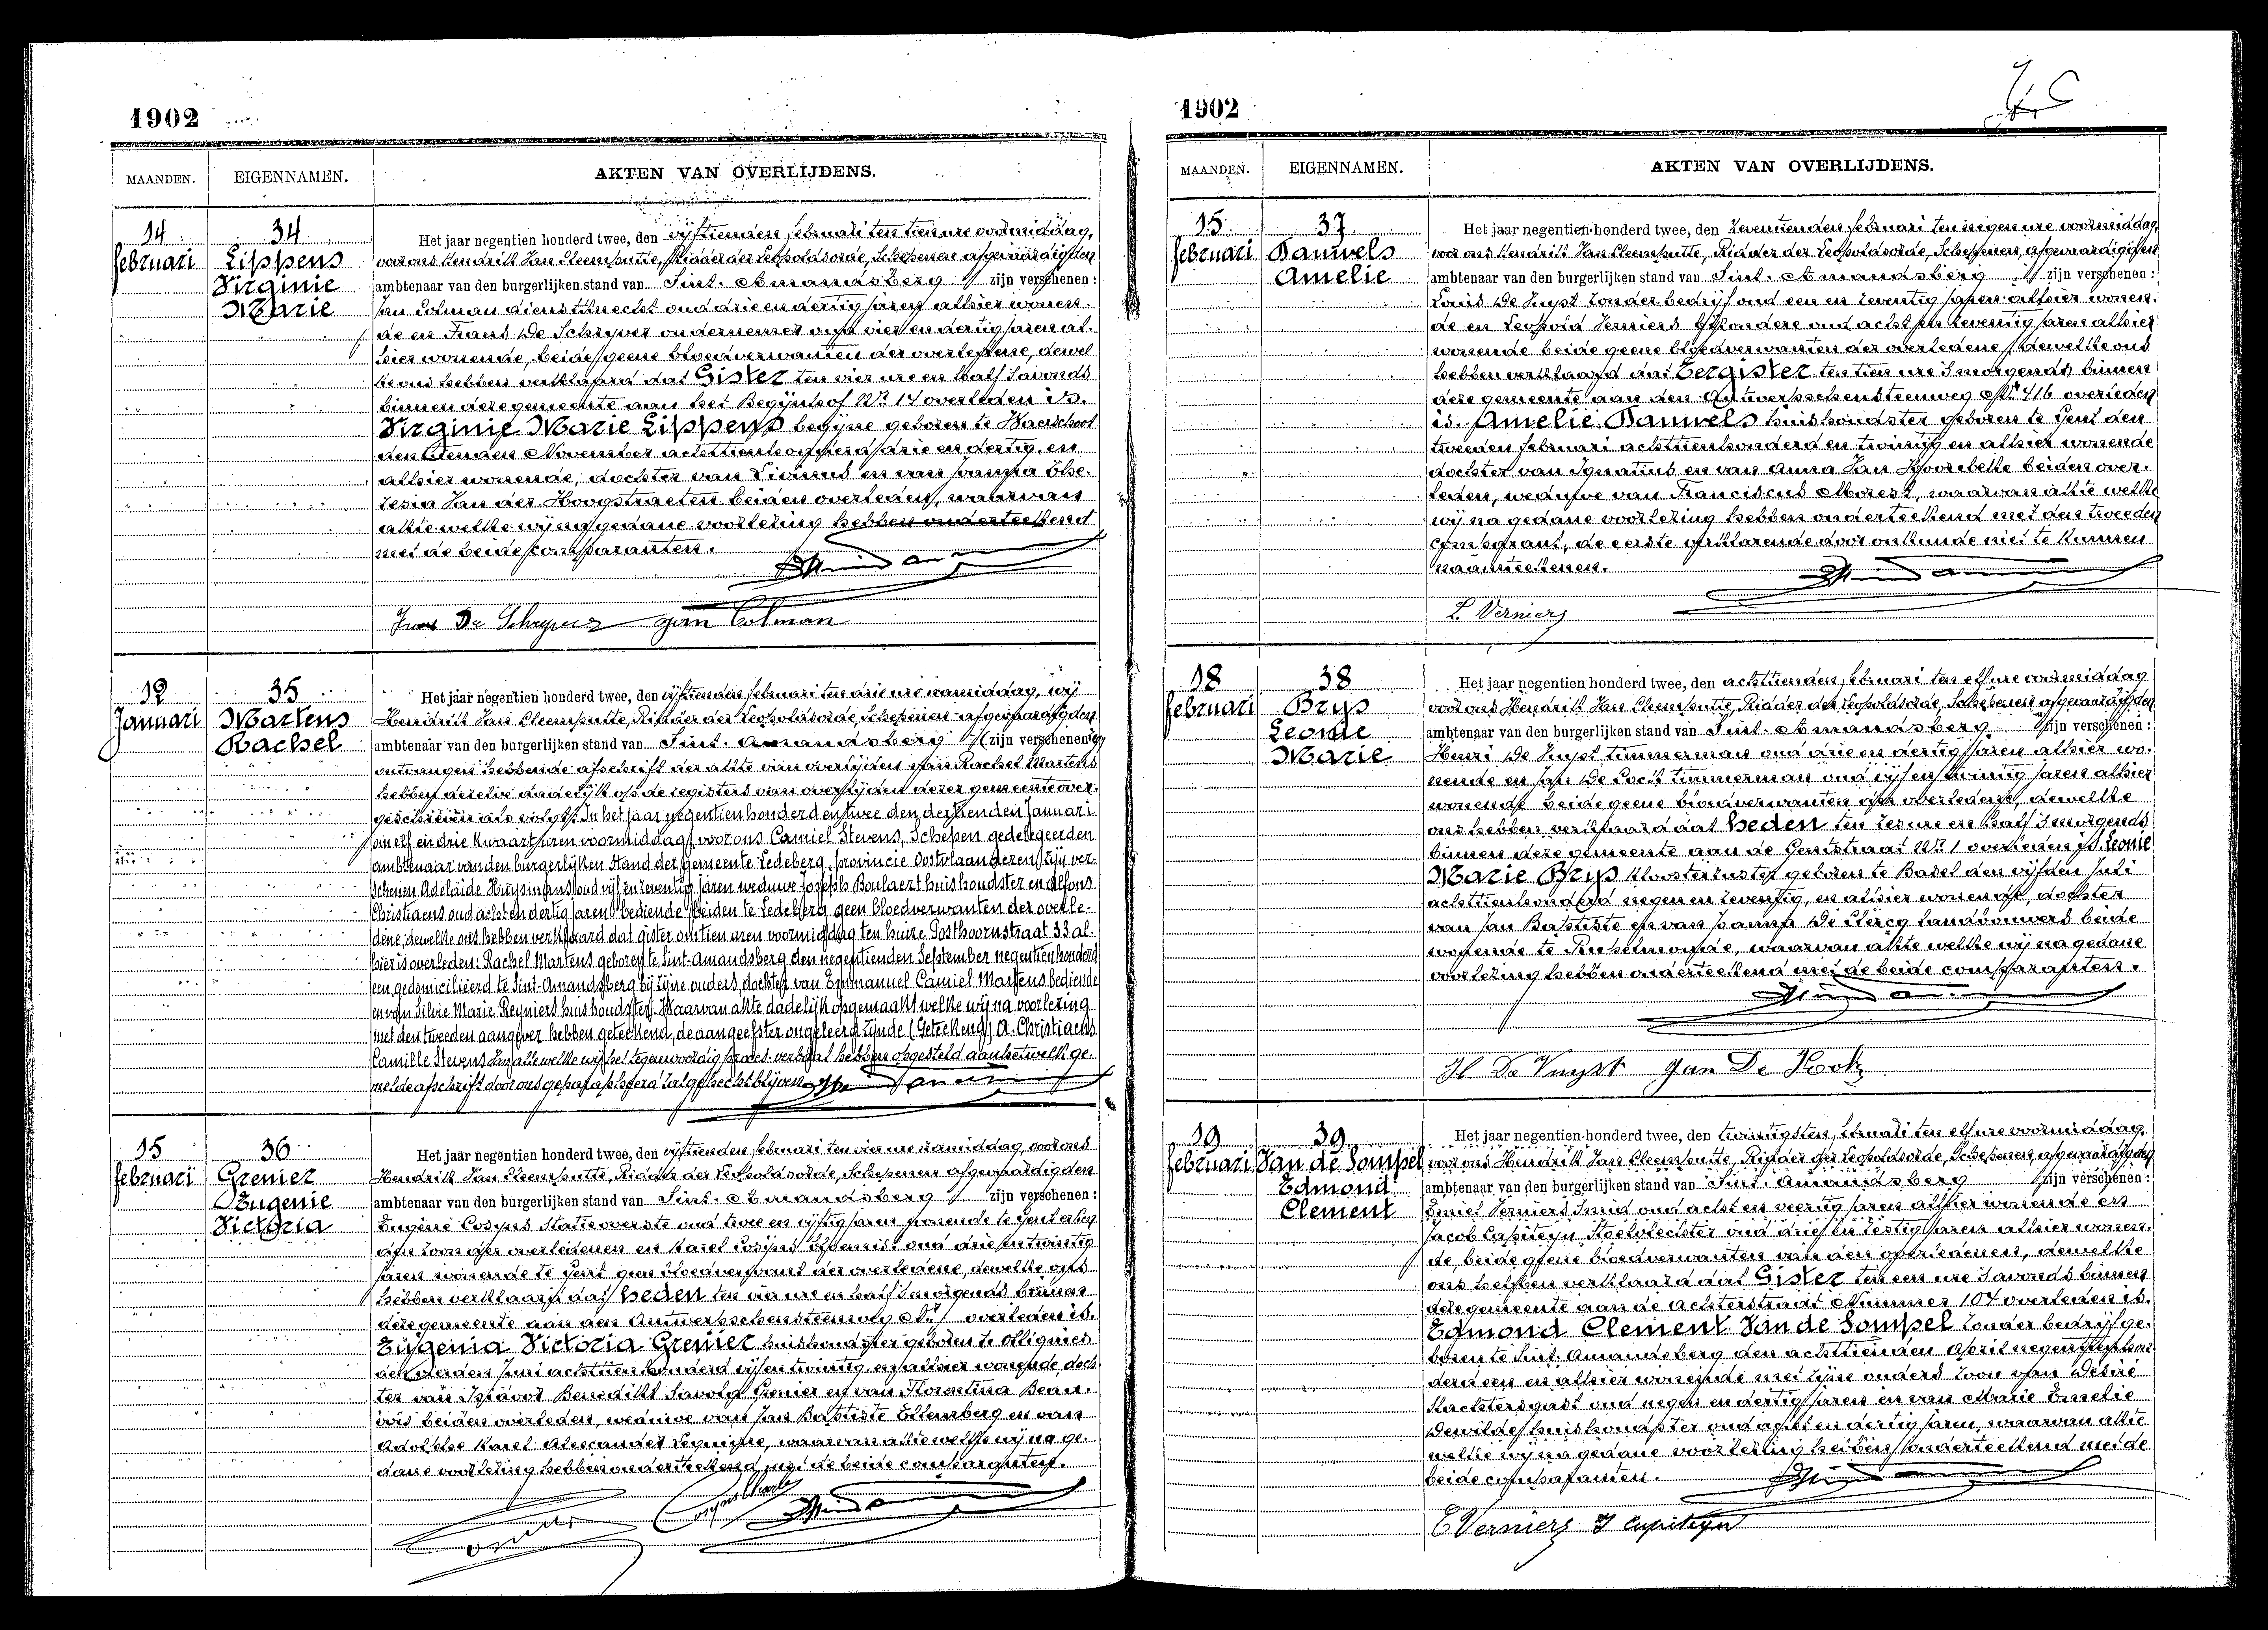 1902
MAANDEN. EIGENNAMEN. AKTEN VAN OVERLIJDENS.
14 februari
34 Lippens Virginie Marie
Het jaar negentien honderd twee, den vijftienden februari ten tien ure voormiddag,
voor ons Hendrik Van Cleemputte, Ridder der Leopoldsorde, Schepenen afgevaardigden
ambtenaar van den burgerlijken stand van Sint-Amandsberg zijn verschenen:
Jan Colman dienstknecht oud drie en dertig jaren alhier wonen-
de en Frans De Schryver ondernemer oud vier en dertig jaren al-
hier wonende, beide geene bloedverwanten der overledene, dewel-
ke ons hebben verklaard dat Gister ten vier ure en half 's avonds
binnen deze gemeente aan het Begijnhof Nr. 14 overleden is.
Virginie Marie Lippens begijne geboren te Waerschoot
den November achttienhonderd drie en dertig, en
alhier wonende, dochter van Livinus en van Joanna The-
resia Van der Hoogstraeten beiden overleden, waarvan
akte welke wij na gedane voorlezing hebben onderteekend
met de beide comparanten.
Frans De Schryver Jan Colman
12 Januari
35 Martens Rachel
Het jaar negentien honderd twee, den vijftienden februari ten drie ure namiddag, wij
Hendrik Van Cleemputte, Ridder der Leopoldsorde, Schepenen afgevaardigden
ambtenaar van den burgerlijken stand van Sint-Amandsberg zijn verschenen
ontvangen hebbende afschrift der akte van overlijden van Rachel Martens
hebben dezelve dadelijk op de registers van overlijden dezer gemeente over-
geschreven als volgt: In het jaar negentienhonderd en twee den dertienden Januari
om elf en drie kwaart uren voormiddag, voor ons Camiel Stevens, Schepen gedelegeerden
ambtenaar van den burgerlijken Stand der gemeente Ledeberg, provincie Oostvlaanderen, zijn ver-
schenen Adelaide Huysmans oud vijf en zeventig jaren weduwe Joseph Boulaert huishoudster en Alfons
Christiaens oud acht en dertig jaren bediende beiden te Ledeberg geen bloedverwanten der overle-
dene, dewelke ons hebben verklaard dat gister om tien uren voormiddag ten huize Posthoornstraat 33 al-
hier is overleden: Rachel Martens geboren te Sint-Amandsberg den negentienden September negentienhonderd
een, gedomicilieerd te Sint-Amandsberg bij zijne ouders, dochter van Emmanuel Camiel Martens bediende
en van Silvie Marie Reyniers huishoudster. Waarvan akte dadelijk opgemaakt welke wij na voorlezing
met den tweeden aangever hebben geteekend, de aangeefster ongeleerd zijnde (Geteekend) A. Christiaens
Camille Stevens. Van alle welke wij het tegenwoordig proces-verbaal hebben opgesteld aan hetwelk ge-
melde afschrift door ons geparapheerd zal gehecht blijven
15 februari
36 Grenier Eugenie Victoria
Het jaar negentien honderd twee, den vijftienden februari ten vier ure namiddag, voor ons
Hendrik Van Cleemputte, Ridder der Leopoldsorde, Schepenen afgevaardigden
ambtenaar van den burgerlijken stand van Sint-Amandsberg zijn verschenen:
Eugène Cosyns Statieoverste oud twee en vijftig jaren wonende te Gent
zoon der overledenen en Karel Cosyns oud drie en twintig
jaren wonende te Gent geen bloedverwant der overledene, dewelke ons
hebben verklaard dat heden ten vier ure en half 's morgends binnen
deze gemeente aan den Antwerpschensteenweg Nr. overleden is.
Eugenia Victoria Grenier huishoudster geboren te Ollignies
den derden Juni achttien honderd vijf en twintig en alhier wonende doch-
ter van Benedikt Grenier en van Florentina Beau-
vois beiden overleden, weduwe van Jan Baptiste Ellemberg en van
Adolphe Karel Alexander waarvan akte welke wij na ge-
dane voorlezing hebben onderteekend met de beide comparanten.
1902
MAANDEN. EIGENNAMEN. AKTEN VAN OVERLIJDENS.
15 februari
37 Bauwels Amelie
Het jaar negentien honderd twee, den zeventienden februari ten negen ure voormiddag,
voor ons Hendrik Van Cleemputte, Ridder der Leopoldsorde, Schepenen, afgevaardigden
ambtenaar van den burgerlijken stand van Sint-Amandsberg zijn verschenen:
Louis De Vuyst zonder bedrijf oud een en zeventig jaren alhier wonen-
de en Leopold Verniers oud acht en zeventig jaren alhier
wonende beide geene bloedverwanten der overledene, dewelke ons
hebben verklaard dat Eergister ten tien ure 's morgends binnen
deze gemeente aan den Antwerpschensteenweg Nr. 416 overleden
is. Amelie Bauwels huishoudster geboren te Gent den
tweeden februari achttienhonderd en twintig en alhier wonende
dochter van Ignatius en van Anna Van Hoorebeke beiden over-
leden, weduwe van Franciscus waarvan akte welke
wij na gedane voorlezing hebben onderteekend met den tweeden
comparant, de eerste verklarende door onkunde niet te kunnen
naamteekenen.
L. Verniers
18 februari
38 Brys Leonie Marie
Het jaar negentien honderd twee, den achttienden februari ten elf ure voormiddag
voor ons Hendrik Van Cleemputte, Ridder der Leopoldsorde, Schepenen afgevaardigden
ambtenaar van den burgerlijken stand van Sint-Amandsberg zijn verschenen:
Henri De Vuyst timmerman oud drie en dertig jaren alhier wo-
nende en Jan De Cock timmerman oud vijf en twintig jaren alhier
wonende beide geene bloedverwanten der overledene, dewelke
ons hebben verklaard dat heden ten zes ure en half 's morgends
binnen deze gemeente aan de Gentstraat Nr. 1 overleden is. Leonie
Marie Brys kloosterzuster geboren te Basel den vijfden Juli
achttienhonderd negen en zeventig, en alhier wonende, dochter
van Jan Baptiste en van Joanna De Clercq landbouwers beide
wonende te Rupelmonde, waarvan akte welke wij na gedane
voorlezing hebben onderteekend met de beide comparanten.
H. De Vuyst Jan De Kock
19 februari
39 Van de Sompel Edmond Clement
Het jaar negentien honderd twee, den twintigsten februari ten elf ure voormiddag,
voor ons Hendrik Van Cleemputte, Ridder der Leopoldsorde, Schepenen, afgevaardigden
ambtenaar van den burgerlijken stand van Sint-Amandsberg zijn verschenen:
Emiel Verniers Smid oud acht en veertig jaren alhier wonende en
Jacob Capiteyn Stoelvlechter oud drie en zestig jaren alhier wonen-
de, beide geene bloedverwanten van den overledenen, dewelke
ons hebben verklaard dat Gister ten een ure 's avonds binnen
deze gemeente aan de Achterstraat Nummer 104 overleden is.
Edmond Clement Van de Sompel zonder bedrijf ge-
boren te Sint-Amandsberg den achttienden April negentienhon-
derd een en alhier wonende met zijne ouders zoon van Desiré
Slachtersgast oud negen en dertig jaren en van Marie Emelie
Dewilde huishoudster oud acht en dertig jaren, waarvan akte
welke wij na gedane voorlezing hebben onderteekend met de
beide comparanten.
E Verniers J Capiteyn